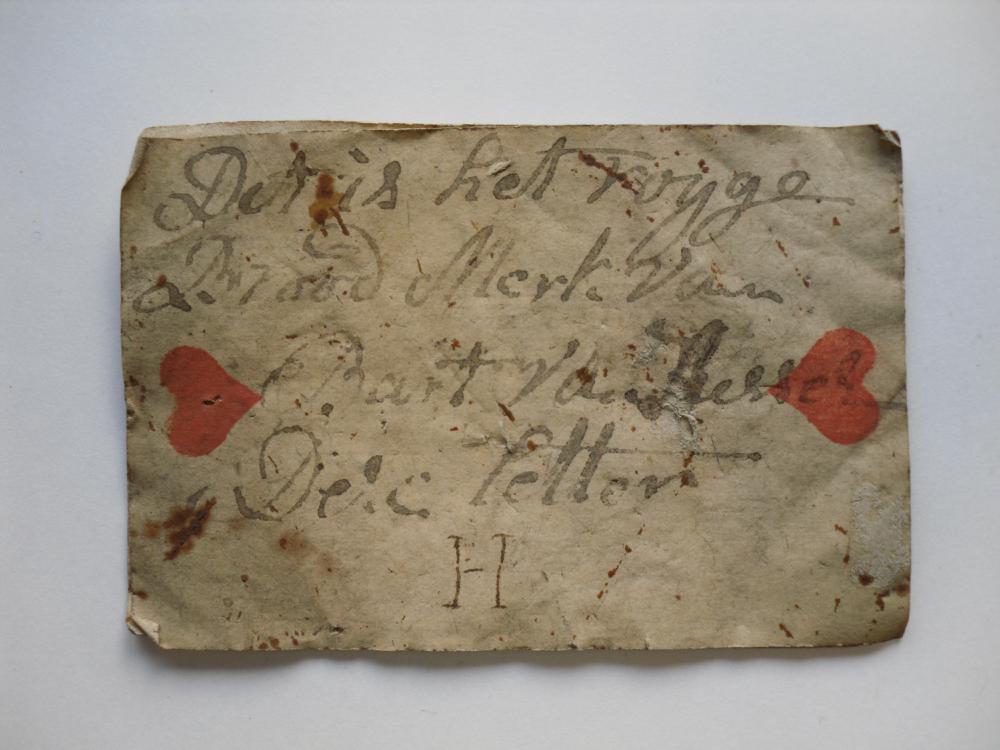 Dit is het rogge
Brood Merk Van
Bart Van Hessel
Dese letter
H